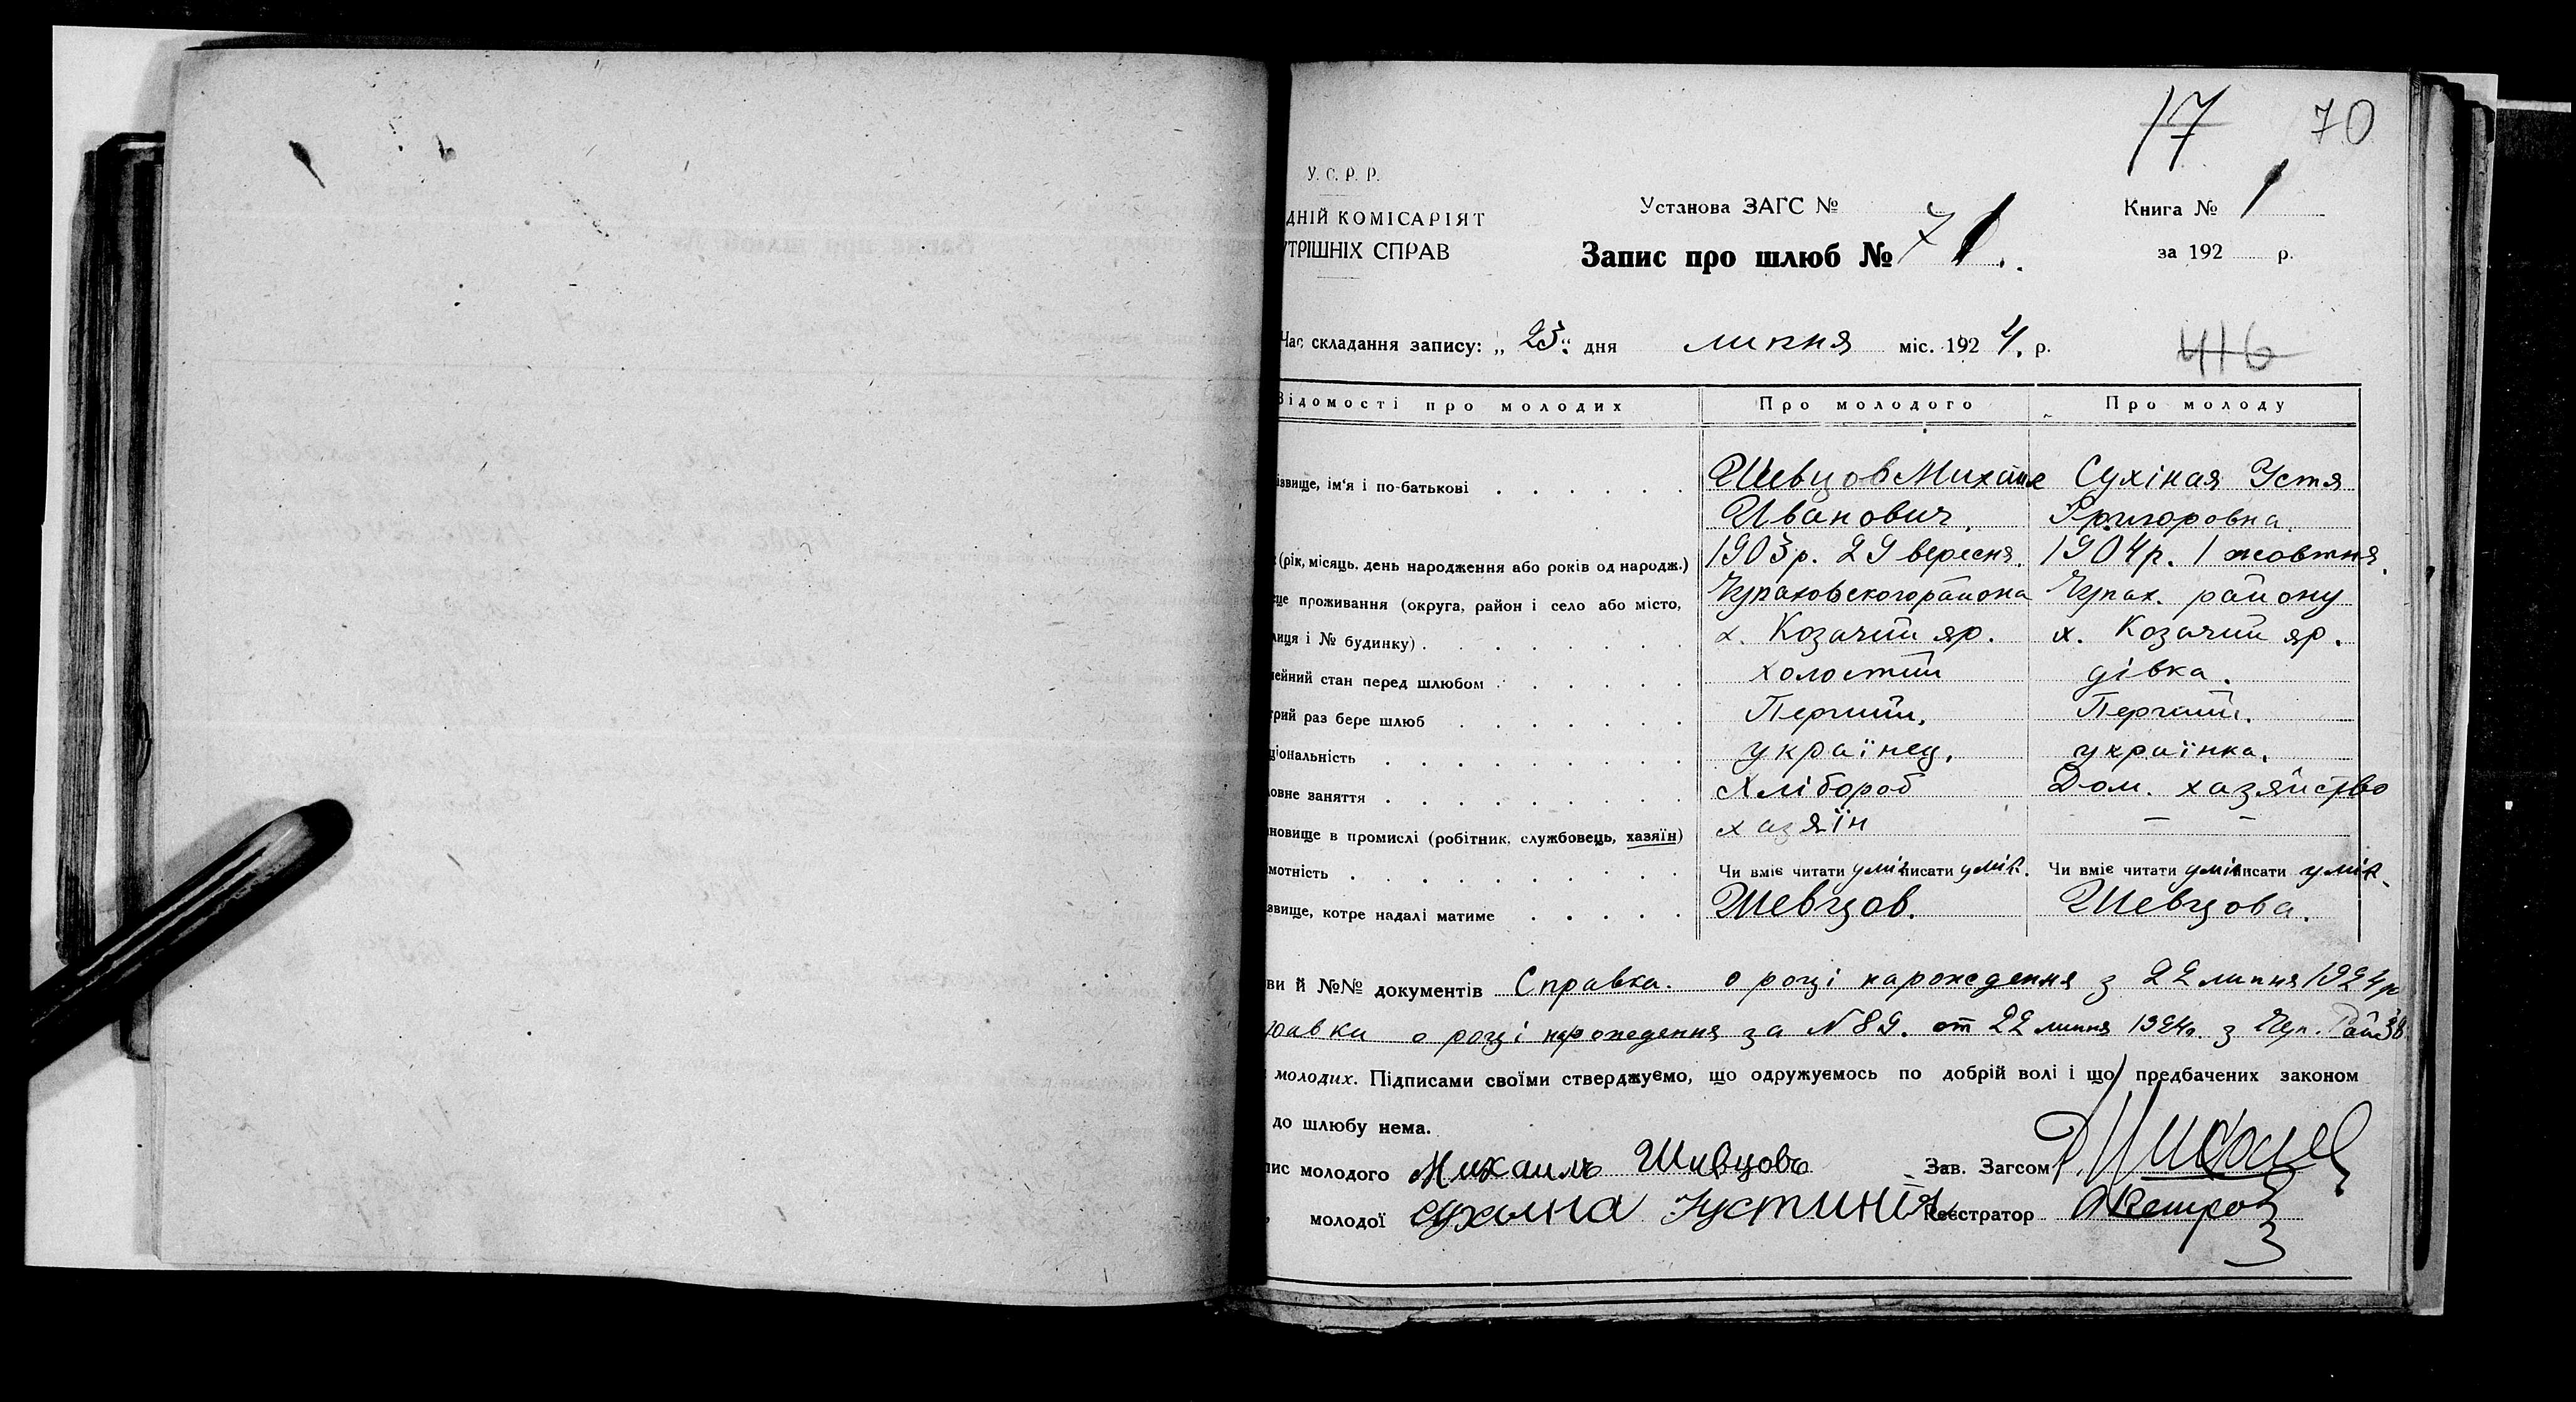 17 70
У. С. Р. Р.
ДНІЙ КОМІСАРІЯТ
УТРІШНІХ СПРАВ
Установа ЗАГС №
Запис про шлюб № 71.
Книга № 1
за 192 р.
Час складання запису: „ 23 “ дня липня міс. 1924. р.
416
Відомості про молодих Про молодого Про молоду
ізвище, ім'я і по-батькові Шевцов Михаил Сухіная Устя
Иванович. Григоровна.
(рік, місяць, день народження або років од народж.) 1903р. 29 вересня. 1904р. 1 жовтня.
це проживання (округа, район і село або місто, Чупаховского района Чупах. району
лиця і № будинку) х. Козачий яр. х. Козачий яр.
ейний стан перед шлюбом холостий дівка.
трий раз бере шлюб Перший. Перший.
ціональність українец. українка.
овне заняття Хлібороб Дом. хазяйство
новище в промислі (робітник, службовець, хазяїн) хазяїн — —
мотність Чи вміє читати уміє писати уміє. Чи вміє читати уміє писати уміє.
звище, котре надалі матиме Шевцов. Шевцова.
ви й №№ документів Справка. о році народження з 22 липня 1924р
равки о році народження за N 89. от 22 липня 1924р. з Чуп.
молодих. Підписами своїми стверджуємо, що одружуємось по добрій волі і що предбачених законом
до шлюбу нема.
пис молодого Михаилъ Шивцовъ Зав. Загсом
молодої Сухина Устиния Реєстратор